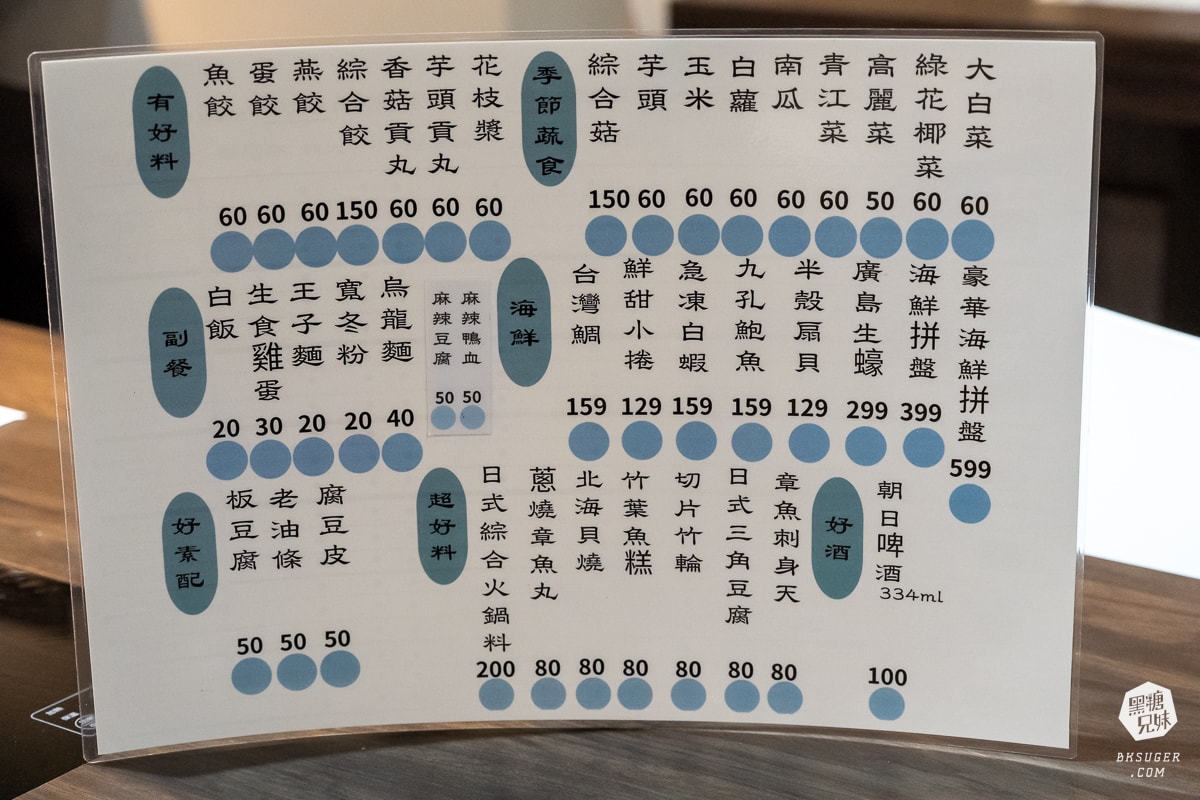 有好料
魚餃 60
蛋餃 60
燕餃 60
綜合餃 150
香菇貢丸 60
芋頭貢丸 60
花枝漿 60
季節蔬食
綜合菇 150
芋頭 60
玉米 60
白蘿 60
南瓜 60
青江菜 60
高麗菜 50
綠花椰菜 60
大白菜 60
副餐
白飯 20
生食雞蛋 30
王子麵 20
寬冬粉 20
烏龍麵 40
麻辣豆腐 50
麻辣鴨血 50
海鮮
台灣鯛 159
鮮甜小捲 129
急凍白蝦 159
九孔鮑魚 159
半殼扇貝 129
廣島生蠔 299
海鮮拼盤 399
豪華海鮮拼盤 599
好素配
板豆腐 50
老油條 50
腐豆皮 50
超好料
日式綜合火鍋料 200
蔥燒章魚丸 80
北海貝燒 80
竹葉魚糕 80
切片竹輪 80
日式三角豆腐 80
章魚刺身天 80
好酒
朝日啤酒 334ml 100
黑糖兄妹
BKSUGER
.COM